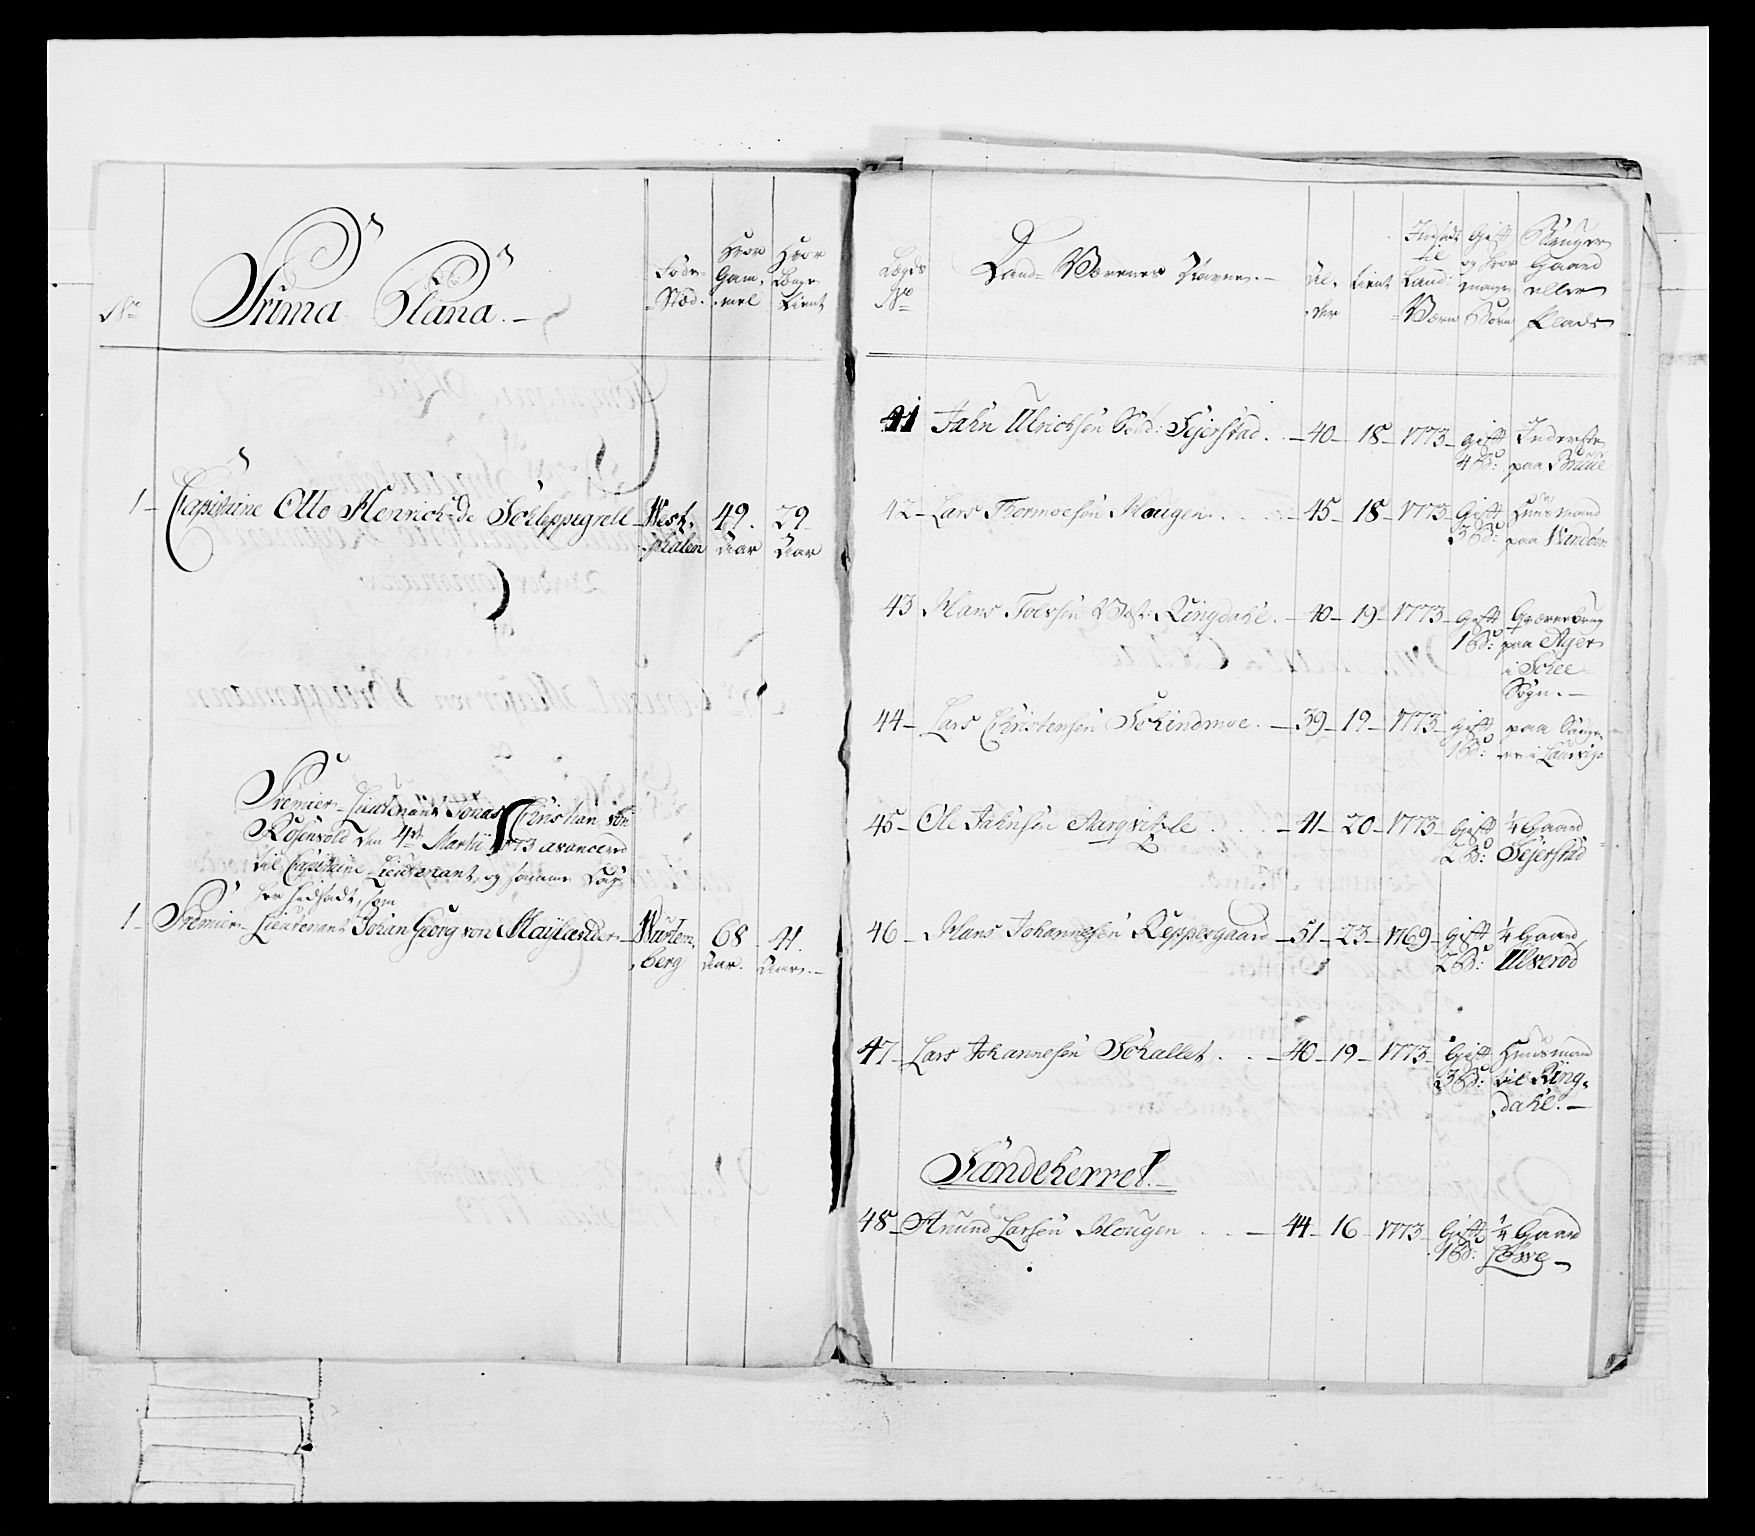 No
Prima Plana.
Føde-
Stæd.
Hvor
Gam-
mel
Hvor
Længe
tient
1 Capitaine Otto Henrich de Schleppegrell
West-
phalen
49.
Aar
29
Aar
Premier-Lieutenant Jonas Christian von
Rosenvold den 4de Martii 1773 avanceret
til Capitaine-Lieutenant, og samme Dag
her hidsadt, som
1 Premier-Lieutenant Johan Georg von Maylander
Würtem-
berg
68
Aar.
41.
Aar.
Lægds
No
Land-Værnes Navne.
Al-
der
tient
Indsadt
til
Land-
Værn
Gift
og hvor
mange
Børn
Bruger
Gaard
eller
Plads
41 Jahn Ulrichsen Sønd: Sejerstad. 40 18 1773 gift Inderste
4 B: paa Bruue
42 Lars Thormoesen Hougen 45 18 1773 Gift Huusmand
3 B: paa Vindøen
43 Hans Torsen Vest: Ringdahl. 40 19 1773 gift Qværnebrug
1 B: paa Ager
i Schee
Sogn.
44 Lars Christensen Schindmoe. 39 19 1773 gift paa
1 B: i Laurvigs
45 Ole Jahnsen 41 20 1773 gift 1/4 Gaard
2 B: Sejerstad
46 Hans Johannesen Reppesgaard 51 23 1769 gift 1/4 Gaard
2 B: Ulverød
47 Lars Johannesen Schallet. 40 19 1773 Gift Huusmand
3 B: til Ring-
dahl.
Sandeherret.
48 Anund Larsen Hougen 44 16 1773 Gift 1/4 Gaard
1 B: